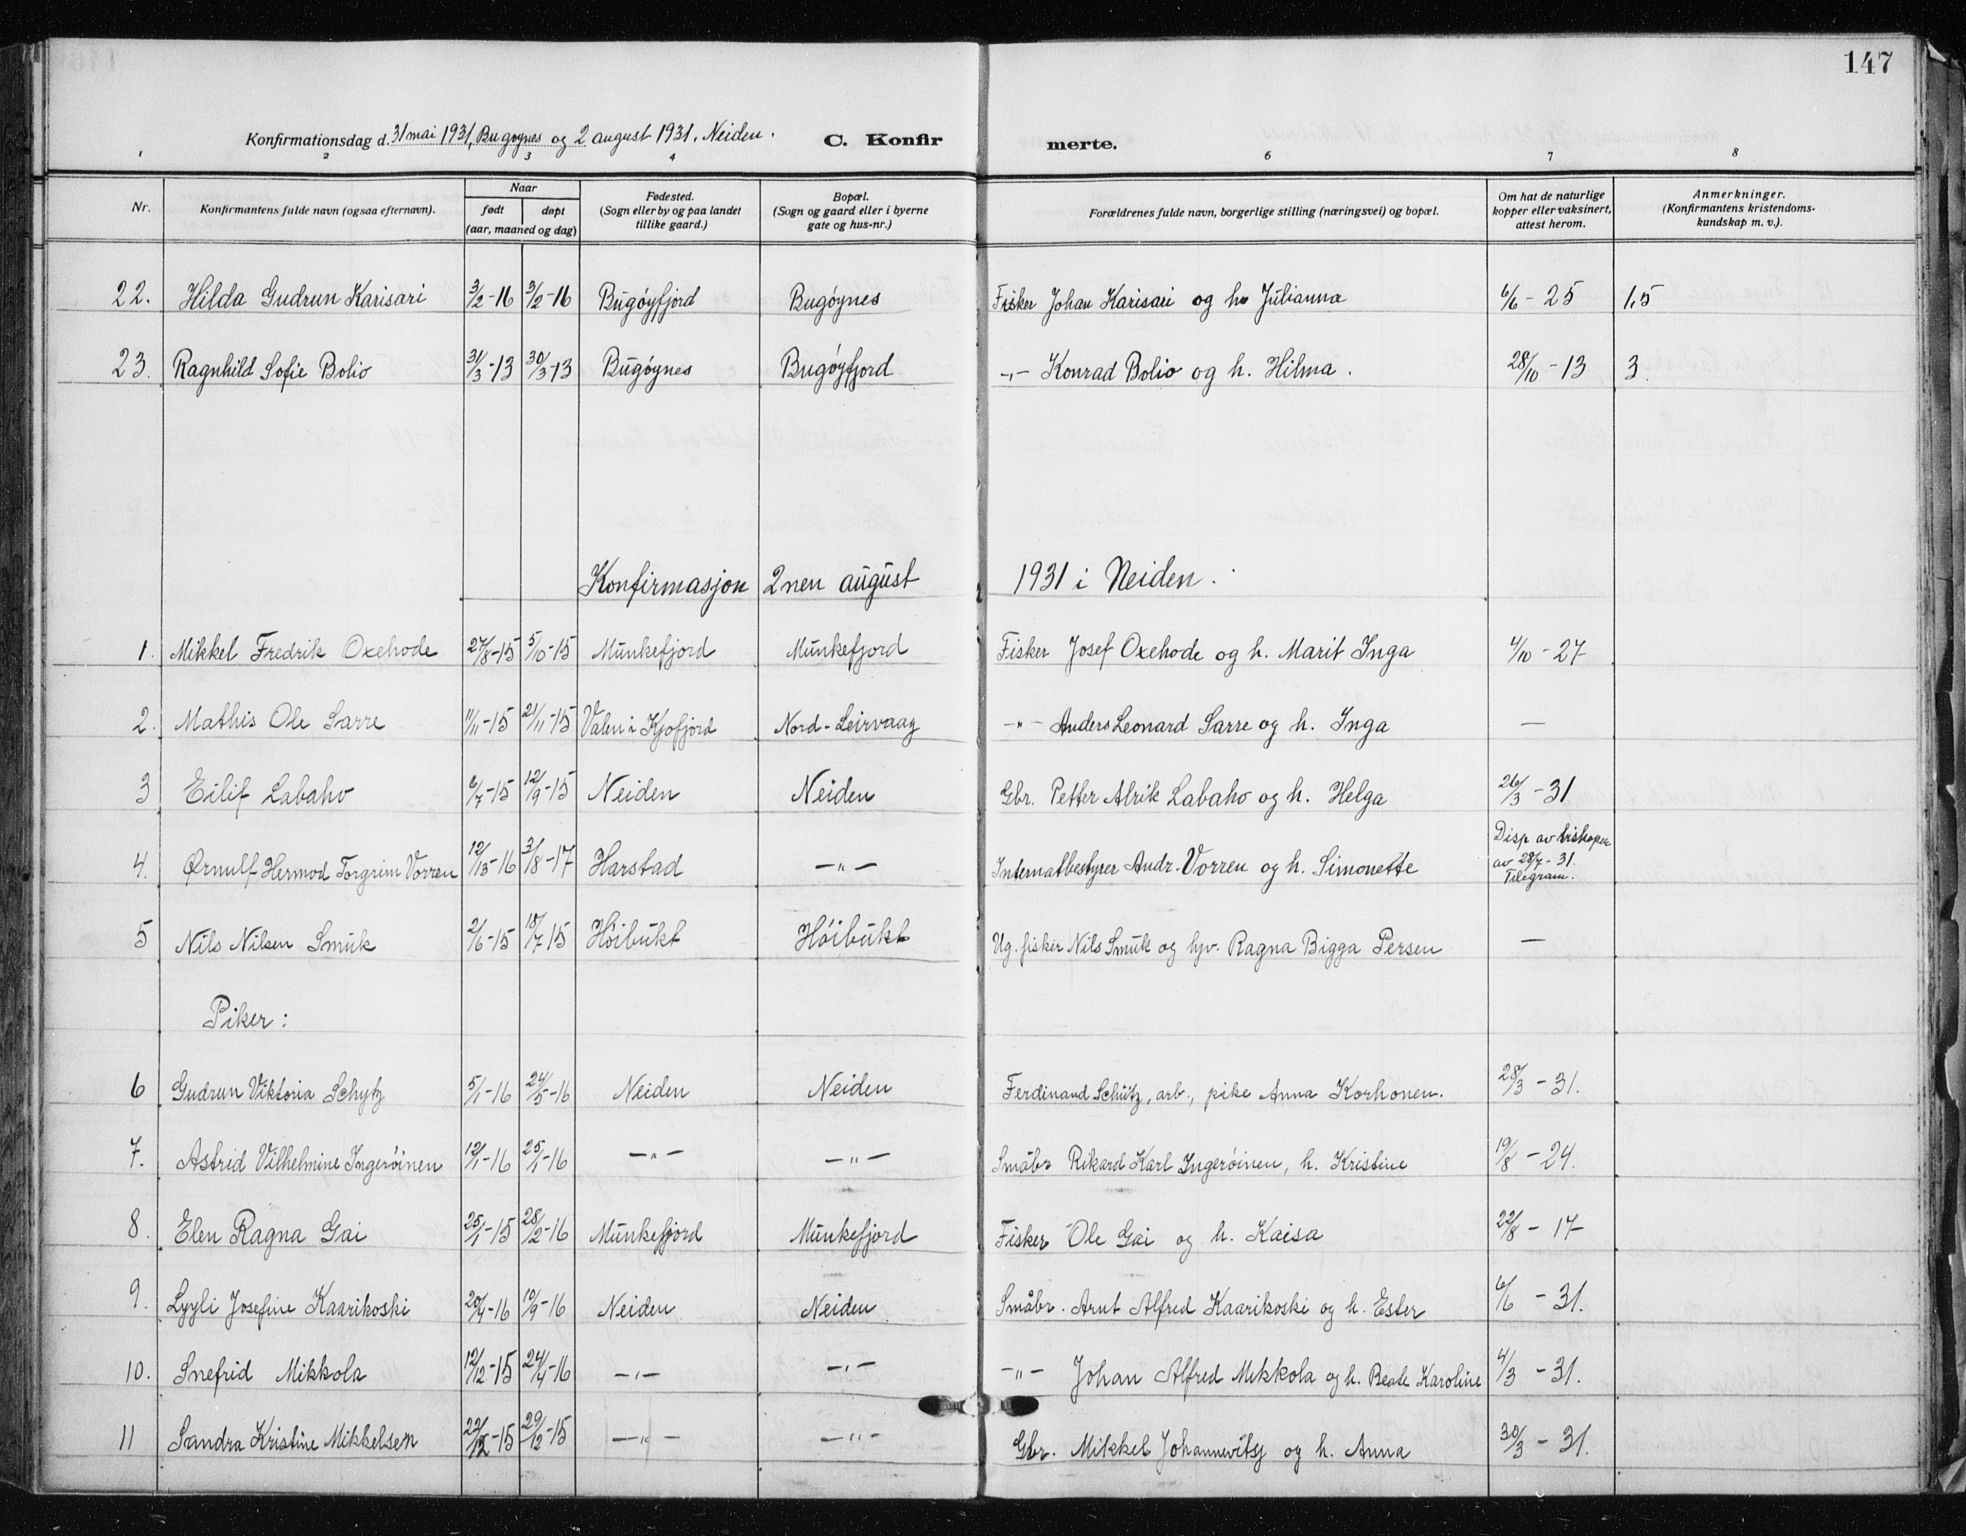 147
Konfirmationsdag d. 31 mai 1931, Bugøynes og 2 august 1931. Neiden. C. Konfirmerte.
1 2 3 4 6 7 8
Nr. | Konfirmantens fulde navn (ogsaa efternavn). | Naar født | døpt (aar, maaned og dag) | Fødested. (Sogn eller by og paa landet tillike gaard.) | Bopæl. (Sogn og gaard eller i byerne gate og hus-nr.) | Forældrenes fulde navn, borgerlige stilling (næringsvei) og bopæl. | Om hat de naturlige kopper eller vaksinert, attest herom. | Anmerkninger. (Konfirmantens kristendomskundskap m. v.).
22. Hilda Gudrun Karisari 3/2-16 3/2-16 Bugøyfjord Bugøynes Fisker Johan Karisari og h. Julianna 6/6-25 1,5
23. Ragnhild Sofie Bolio 31/3-13 30/3-13 Bugøynes Bugøyfjord -"- Konrad Bolio og h. Hilma. 28/10-13 3.
Konfirmasjon 2nen august 1931 i Neiden.
1. Mikkel Fredrik Oxehode 27/8-15 5/10-15 Munkefjord Munkefjord Fisker Josef Oxehode og h. Marit Inga 4/10-27
2. Mathis Ole Sarre 11/11-15 21/11-15 Valen i Kjofjord Nord-Leirvaag -"- Anders Leonard Sarre og h. Inga —
3 Eilif Labaho 6/7-15 12/9-15 Neiden Neiden Gbr. Petter Alrik Labaho og h. Helga 26/3-31
4. Ørnulf Hermod Torgrim Vorren 3/8-17 Harstad -"- Internatbestyrer Andr. Vorren og h. Simonette Disp av biskopen av 28/7-31. Telegram.
5 Nils Nilsen Smuk 2/6-15 18/7-15 Høibukt Høibukt Ug. fisker Nils Smuk og hjv. Ragna Bigga Persen —
Piker:
6 Gudrun Viktoria Schytz 5/1-16 24/5-16 Neiden Neiden Ferdinand Schütz, arb., pike Anna Korhonen. 28/3-31.
7. Astrid Vilhelmine Ingerøinen 12/1-16 25/1-16 -"- -"- Småbr Rikard Karl Ingerøinen, h. Kristine 19/8-24.
8. Elen Ragna Gai 25/1-15 28/2-16 Munkefjord Munkefjord Fisker Ole Gai og h. Kaisa 22/8-17
9. Lyyli Josefine Kaarikoski 20/4-16 10/9-16 Neiden Neiden Småbr. Arnt Alfred Kaarikoski og h. Ester 6/6-31.
10. Snefrid Mikkola 12/12-15 24/4-16 -"- -"- -"- Johan Alfred Mikkola og h. Beate Karoline 4/3-31.
11 Sandra Kristine Mikkelsen 22/12-15 29/12-15 -"- -"- Gbr. Mikkel og h. Anna 30/3-31.